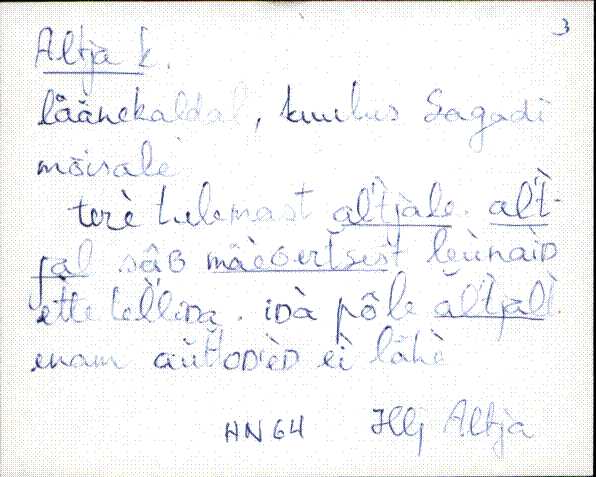 3
Altja k.
läänekaldal, kuulus Sagadi
mõisale
terè tulemast al'tjale. al't-
jal sâʙ mäèᴏertsest leùnaiᴅ
ette tel'liᴅa. iᴅà põle ăl'tjalt
enam aùttoᴅieᴅ ei lähè
HN64 Hlj Altja